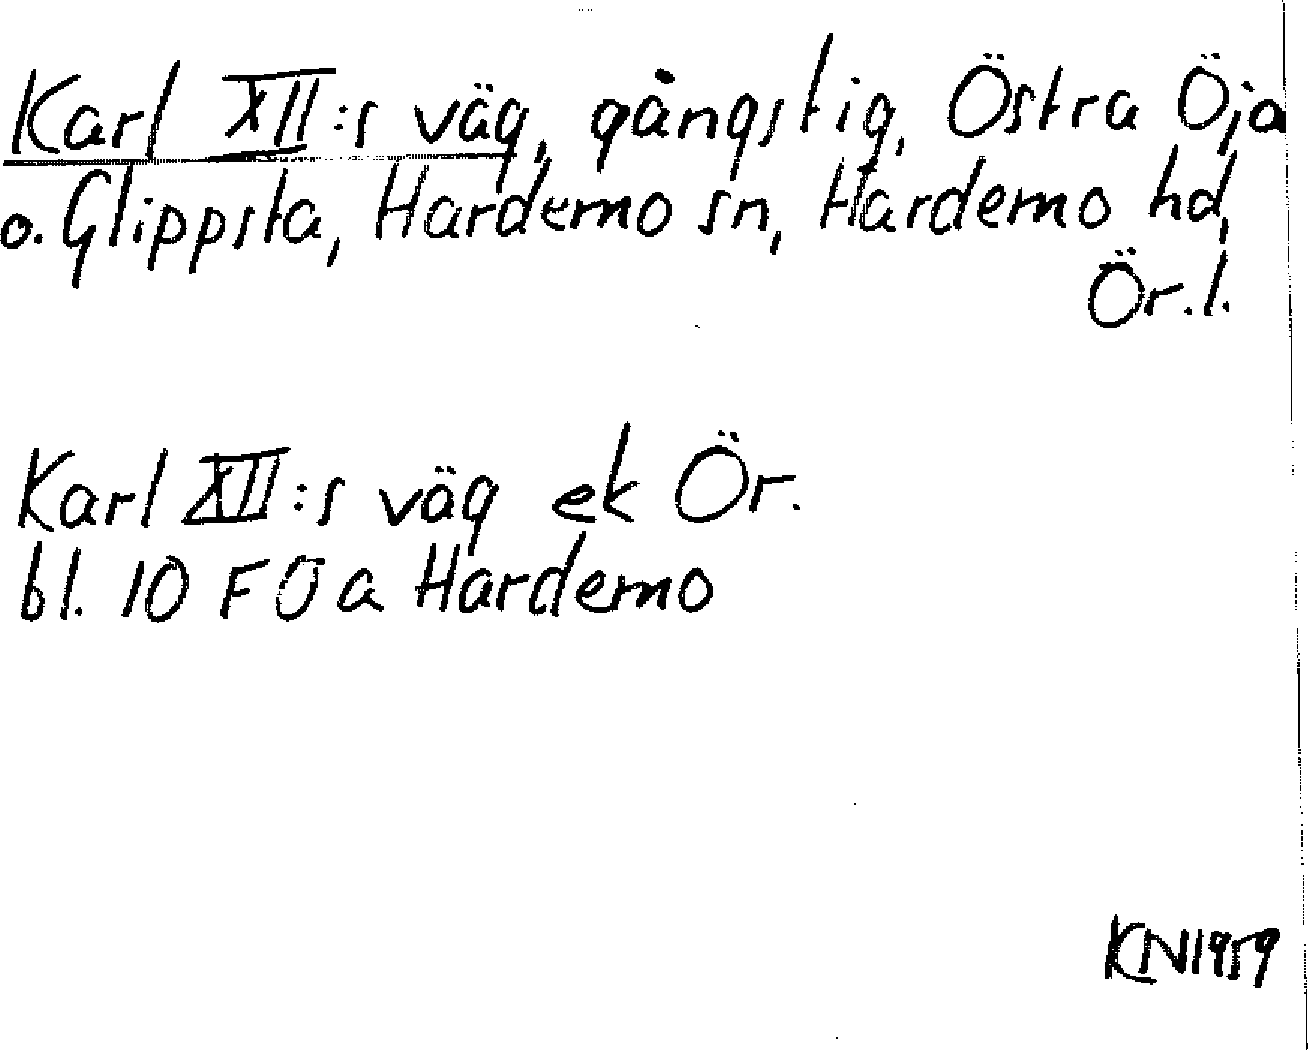 Karl XII:s väg, gångstig, Östra Öja
o. Glippsta, Hardemo sn, Hardemo hd,
Ör. l.
Karl XII:s väg ek Ör.
bl. 10 F Ö a Hardemo
KN 1959